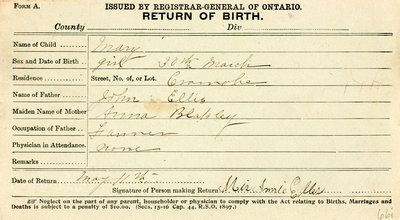 FORM A. ISSUED BY REGISTRAR-GENERAL OF ONTARIO.
RETURN OF BIRTH.
County Div
Name of Child Mary
Sex and Date of Birth girl 30th March
Residence Street, No. of, or Lot. Cramahe
Name of Father John Ellis
Maiden Name of Mother Anna
Occupation of Father Farmer
Physician in Attendance. none
Remarks
Date of Return May 11th
Signature of Person making Return Mrs Annie Ellis
☞ Neglect on the part of any parent, householder or physician to comply with the Act relating to Births, Marriages and
Deaths is subject to a penalty of $10.00. (Secs. 15-16 Cap. 44, R.S.O. 1897.)